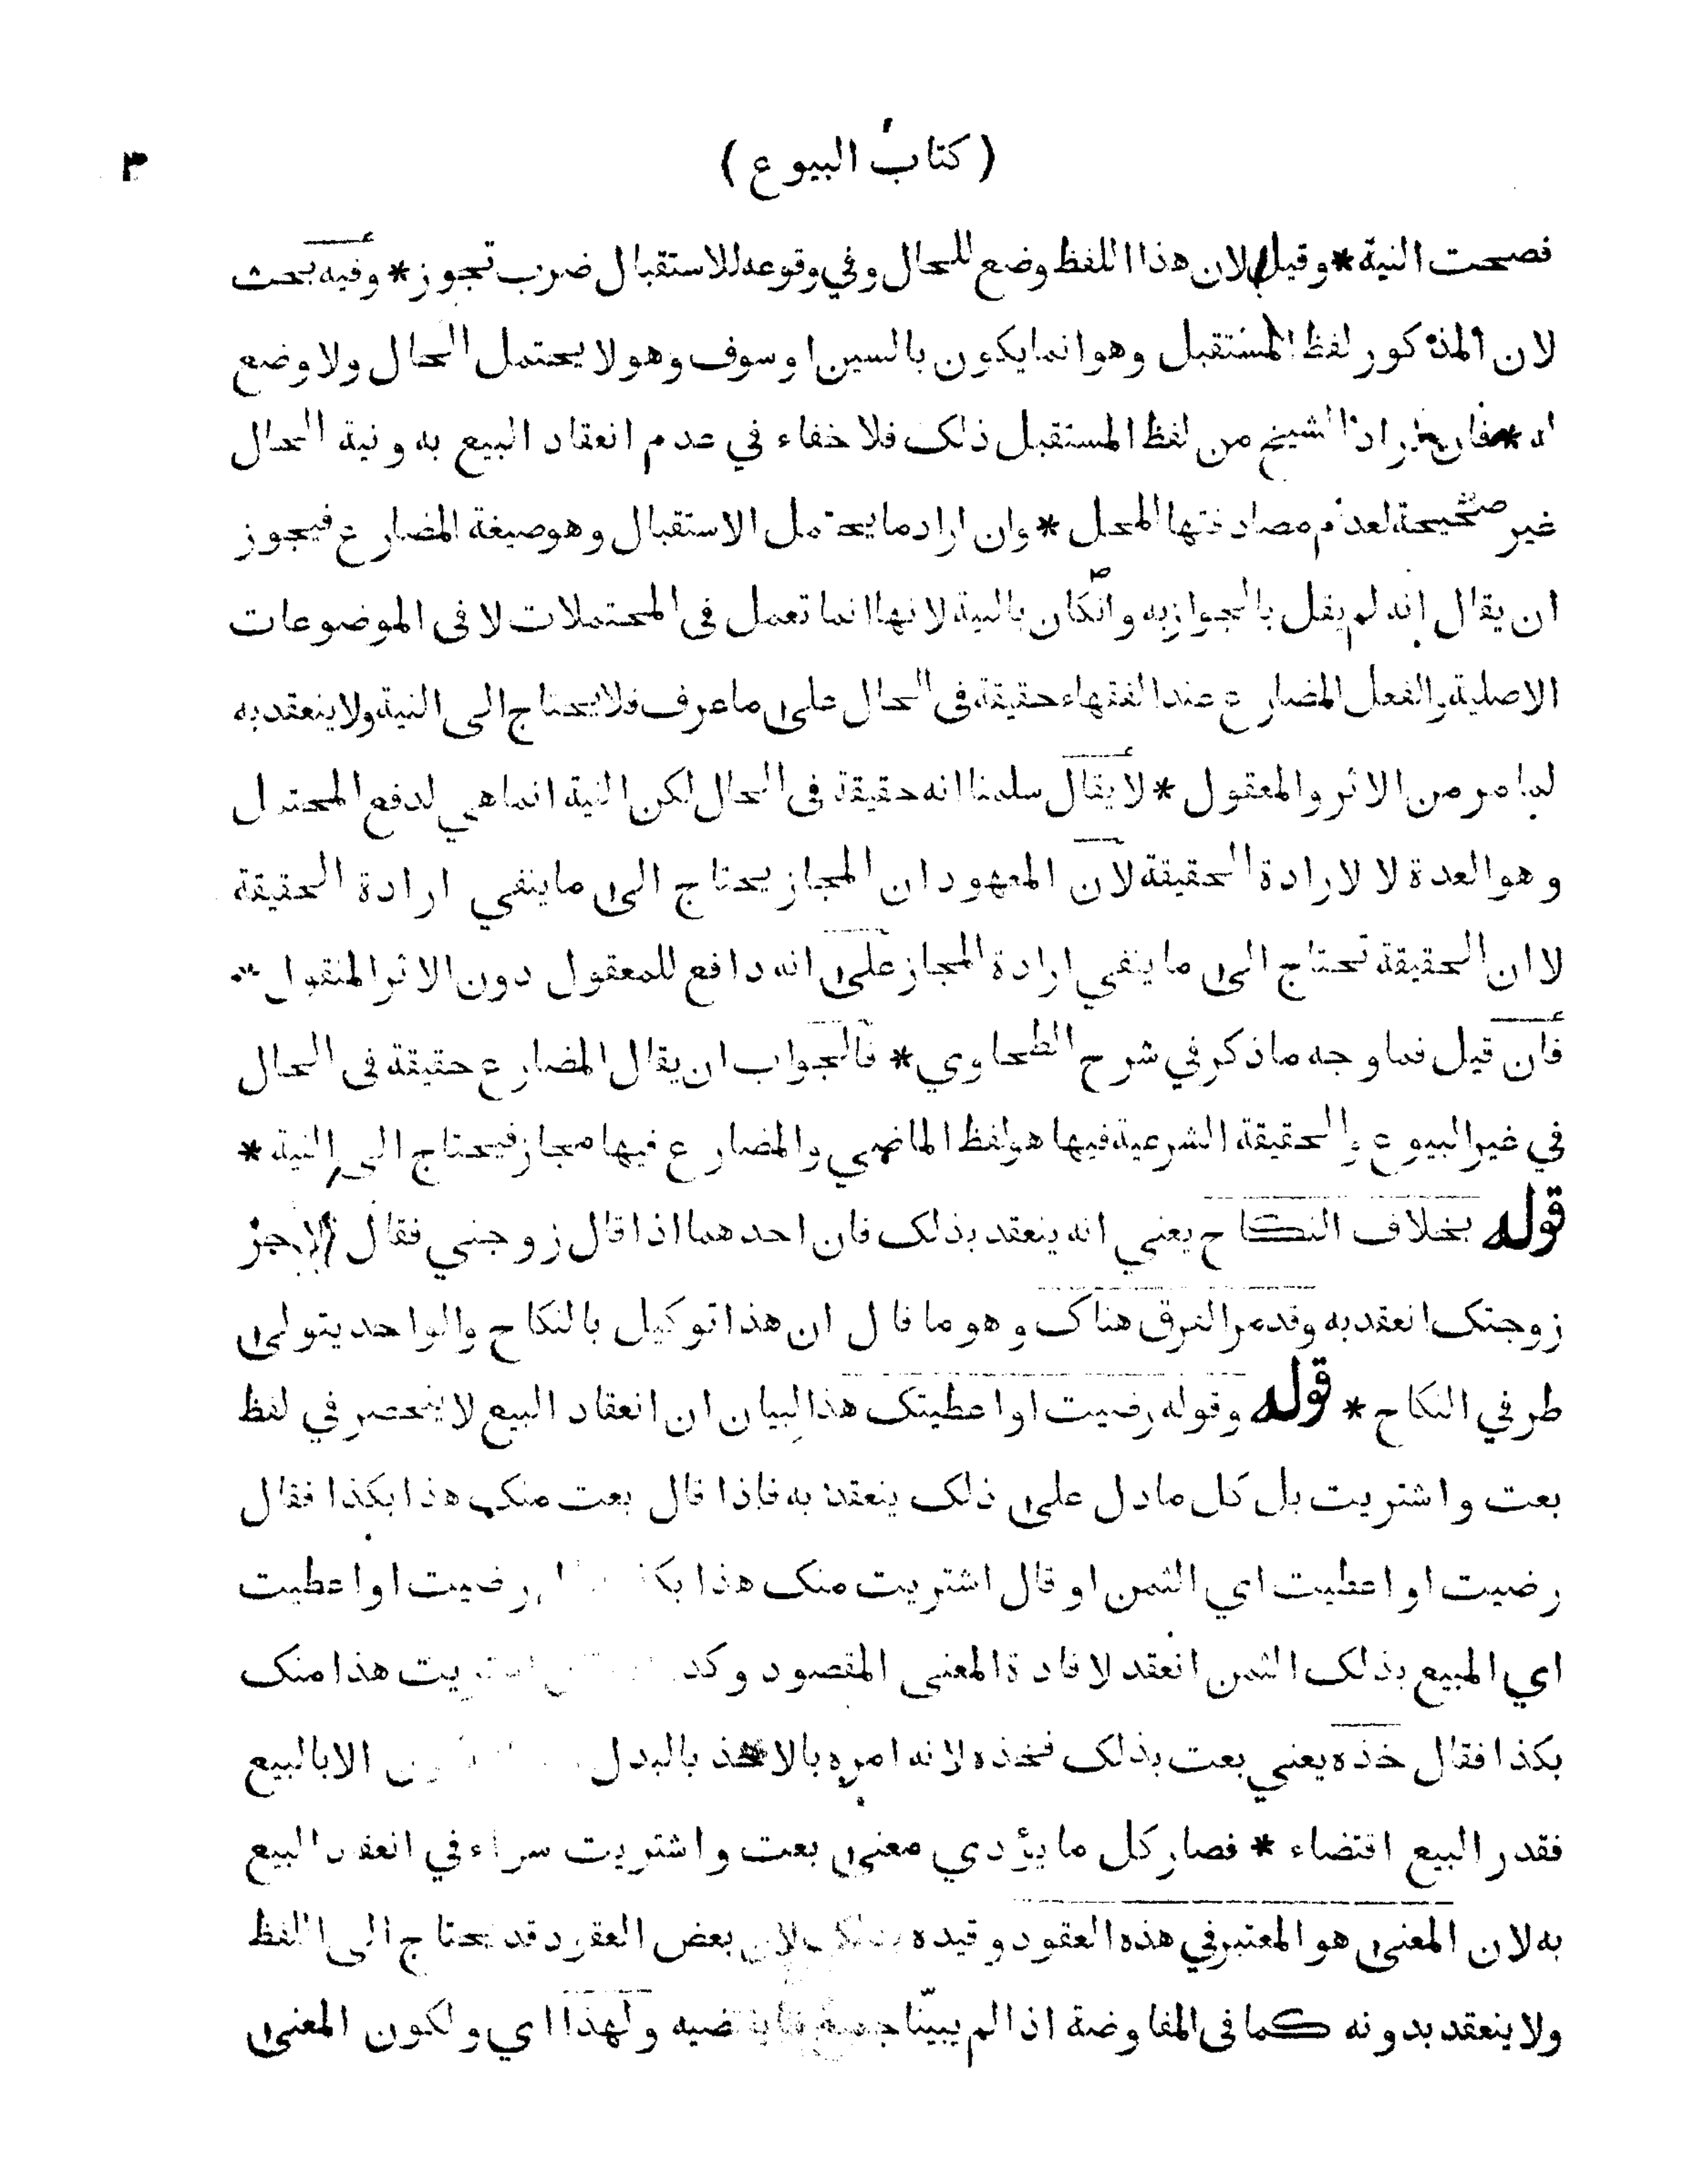 (كتاب البيوع) ٣
فصحت النية * وقيل لان هذا اللفظ وضع للحال وفي وقوعه للاستقبال ضرب تجوز * وفيه بحث
لان المذكور لفظ المستقبل وهو انما يكون بالسين او سوف وهو لا يحتمل الحال ولا وضع
له * فان اراد الشيخ من لفظ المستقبل ذلك فلا خفاء في عدم انعقاد البيع به ونية الحال
غير صحيحة لعدم مصادفتها المحل * وان اراد ما يحتمل الاستقبال وهو صيغة المضارع فيجوز
ان يقال انه لم يقل بالجواز به وان كان بالنية لانها انما تعمل في المحتملات لا في الموضوعات
الاصلية والفعل المضارع عند الفقهاء حقيقة في الحال على ما عرف فلا يحتاج الى النية ولا ينعقد به
لما مر من الاثر والمعقول * لا يقال سلمنا انه حقيقة في الحال لكن النية انما هي لدفع المحتمل
وهو العدة لا لارادة الحقيقة لان المعهود ان المجاز يحتاج الى ما ينفي ارادة الحقيقة
لا ان الحقيقة تحتاج الى ما ينفي ارادة المجاز على انه دافع للمعقول دون الاثر المنقول *
فان قيل فما وجه ما ذكر في شرح الطحاوي * فالجواب ان يقال المضارع حقيقة في الحال
في غير البيوع والحقيقة الشرعية فيها هو لفظ الماضي والمضارع فيها مجاز فيحتاج الى النية *
قوله بخلاف النكاح يعني انه ينعقد بذلك فان احدهما اذا قال زوجني فقال الاخر
زوجتك انعقد به وقد مر الفرق هناك وهو ما قال ان هذا توكيل بالنكاح والواحد يتولى
طرفي النكاح * قوله وقوله رضيت او اعطيتك هذا لبيان ان انعقاد البيع لا ينحصر في لفظ
بعت واشتريت بل كل ما دل على ذلك ينعقد به فاذا قال بعت منك هذا بكذا فقال
رضيت او اعطيت اي الثمن او قال اشتريت منك هذا رضيت او اعطيت
اي المبيع بذلك الثمن انعقد لافادة المعنى المقصود هذا منك
بكذا فقال خذه يعني بعت بذلك فخذه لانه امره بالاخذ بالبدل الا بالبيع
فقدر البيع اقتضاء * فصار كل ما يؤدي معنى بعت واشتريت سواء في انعقاد البيع
به لان المعنى هو المعتبر في هذه العقود وقيده لان بعض العقود قد يحتاج الى اللفظ
ولا ينعقد بدونه كما في المفاوضة اذا لم يبينا جميع ولهذا اي ولكون المعنى